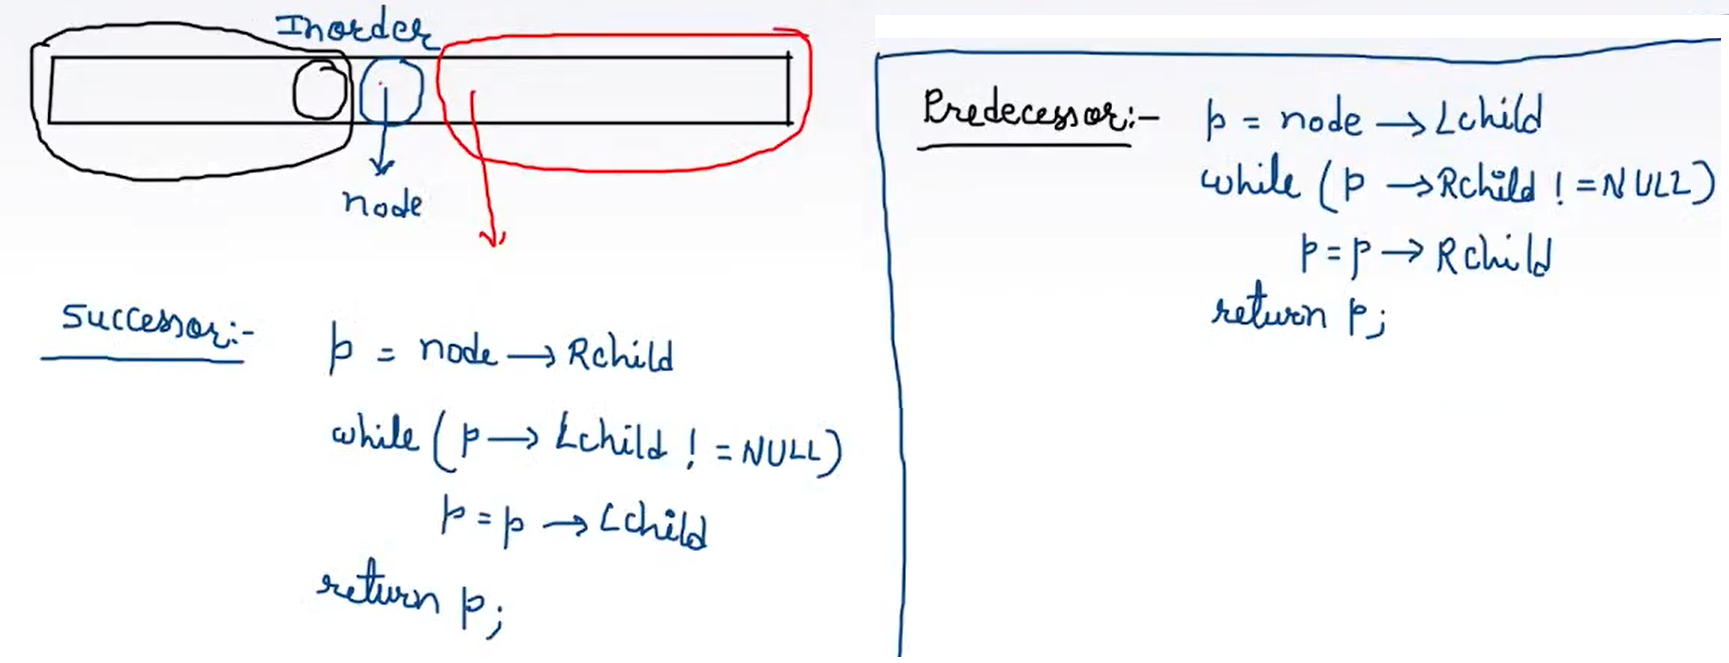 Inorder
node
Successor:-
p = node → Rchild
while ( p → Lchild ! = NULL)
p = p → Lchild
return p;
Predecessor:-
p = node → Lchild
while ( p → Rchild ! = NULL)
p = p → Rchild
return p;